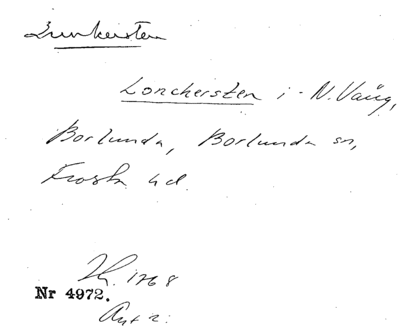 Lunkersten
Lonchersten i N. Vång,
Borlunda, Borlunda sn,
Frosta hd.
1768
Nr 4972.